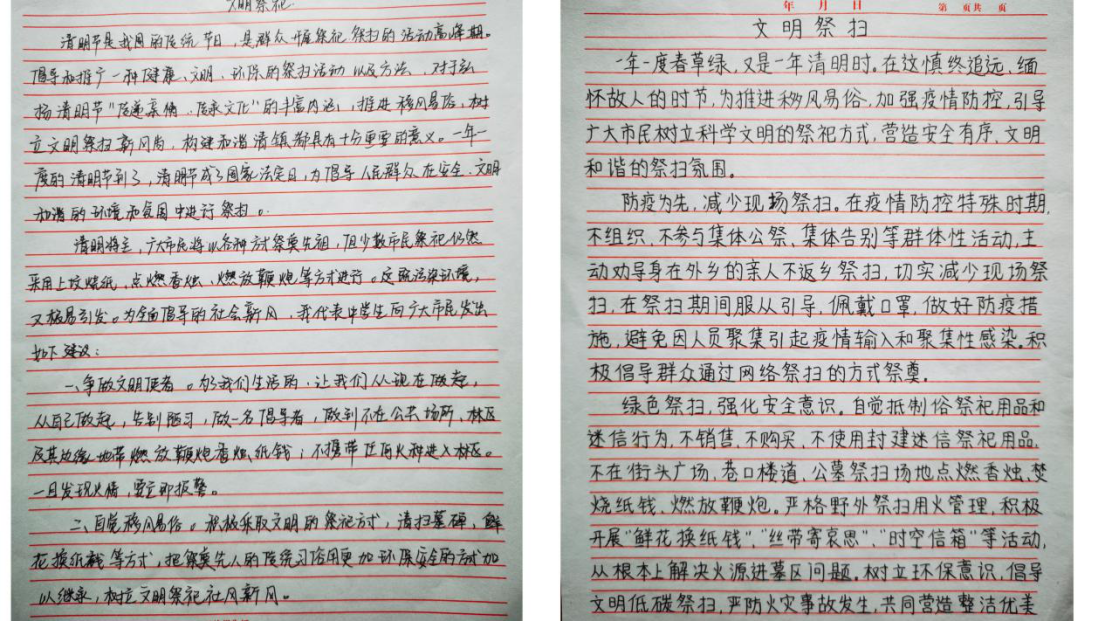 文明祭祀
清明节是我国的传统节日，是群众开展祭祀祭扫的活动高峰期。
倡导和推广一种健康、文明、环保的祭扫活动以及方法，对于弘
扬清明节“传递亲情、传承文化”的丰富内涵，推进移风易俗，树
立文明祭扫新风尚，构建和谐清镇都具有十分重要的意义。一年一
度的清明节到了，清明节成了国家法定日，为倡导人民群众在安全、文明
和谐的环境和氛围中进行祭扫。
清明将至，广大市民将以各种方式祭奠先祖，但少数市民祭祀仍然
采用上坟烧纸、点燃香烛、燃放鞭炮等方式进行。这既污染环境，
又极易引发。为全面倡导的社会新风，我代表中学生向广大市民发出
如下建议：
一、争做文明使者。为了我们生活的，让我们从现在做起，
从自己做起，告别陋习，做一名倡导者，做到不在公共场所、林区
及其边缘地带燃放鞭炮香烛纸钱；不携带任何火种进入林区。
一旦发现火情，要立即报警。
二、自觉移风易俗。积极采取文明的祭祀方式，清扫墓碑，鲜
花换纸钱等方式，把祭奠先人的传统习俗用更加环保安全的方式加
以继承，树立文明祭祀社风新风。
年 月 日 第 页共 页
文明祭扫
一年一度春草绿，又是一年清明时。在这慎终追远，缅
怀故人的时节，为推进移风易俗，加强疫情防控，引导
广大市民树立科学文明的祭祀方式，营造安全有序、文明
和谐的祭扫氛围。
防疫为先，减少现场祭扫。在疫情防控特殊时期，
不组织，不参与集体公祭、集体告别等群体性活动，主
动劝导身在外乡的亲人不返乡祭扫，切实减少现场祭
扫，在祭扫期间服从引导，佩戴口罩，做好防疫措
施，避免因人员聚集引起疫情输入和聚集性感染。积
极倡导群众通过网络祭扫的方式祭奠。
绿色祭扫，强化安全意识。自觉抵制俗祭祀用品和
迷信行为，不销售、不购买、不使用封建迷信祭祀用品，
不在街头广场、巷口楼道、公墓祭扫场地点燃香烛、焚
烧纸钱、燃放鞭炮。严格野外祭扫用火管理，积极
开展“鲜花换纸钱”、“丝带寄哀思”、“时空信箱”等活动，
从根本上解决火源进墓区问题。树立环保意识，倡导
文明低碳祭扫，严防火灾事故发生，共同营造整洁优美